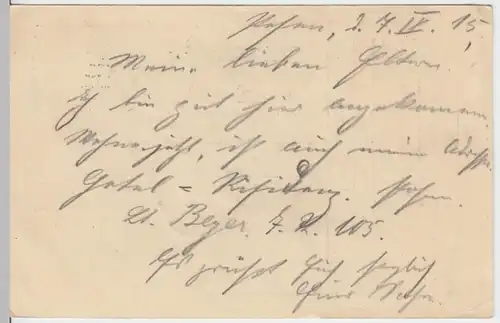 Posen, d. 7. IV. 15,
Meine lieben Eltern.
Ich bin gut hier angekommen
Wohne jetzt, ist auch meine Adresse
Hotel = Residenz. Posen.
Lt. Beyer. F. R. 105.
Es grüßt Euch herzlich
Euer